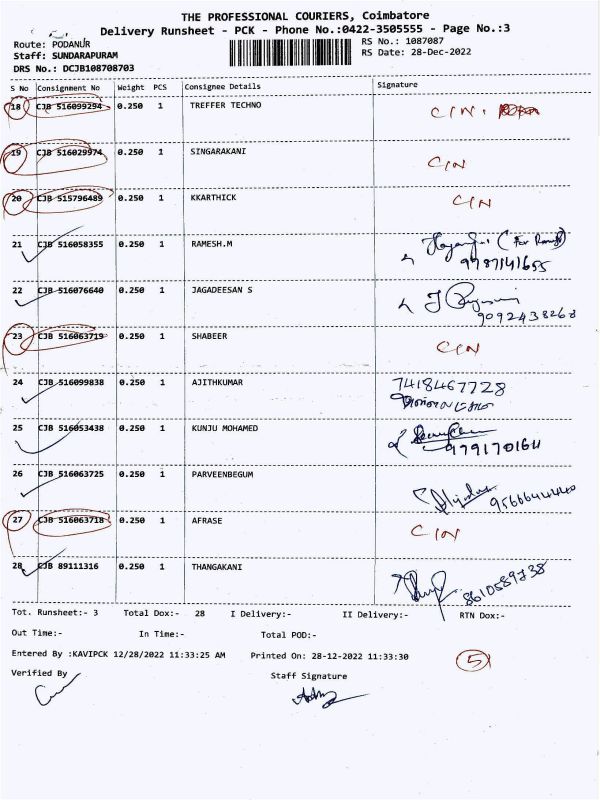 THE PROFESSIONAL COURIERS, Coimbatore
Delivery Runsheet - PCK - Phone No.:0422-3505555 - Page No.:3
Route: PODANUR
RS No.: 1087087
Staff: SUNDARAPURAM
RS Date: 28-Dec-2022
DRS No.: DCJB108708703
S No Consignment No Weight PCS Consignee Details Signature
18 CJB 516099294 0.250 1 TREFFER TECHNO CIN.
19 CJB 516029974 0.250 1 SINGARAKANI CIN
20 CJB 515796489 0.250 1 KKARTHICK CIN
21 CJB 516058355 0.250 1 RAMESH.M (For Ramesh)
9787141655
22 CJB 516076640 0.250 1 JAGADEESAN S
9092438268
23 CJB 516063719 0.250 1 SHABEER CIN
24 CJB 516099838 0.250 1 AJITHKUMAR 7418467728
25 CJB 516053438 0.250 1 KUNJU MOHAMED
9791770164
26 CJB 516063725 0.250 1 PARVEENBEGUM
9566644440
27 CJB 516063718 0.250 1 AFRASE CIN
28 CJB 89111316 0.250 1 THANGAKANI 8610589738
Tot. Runsheet:- 3 Total Dox:- 28 I Delivery:- II Delivery:- RTN Dox:-
Out Time:- In Time:- Total POD:-
Entered By :KAVIPCK 12/28/2022 11:33:25 AM Printed On: 28-12-2022 11:33:30
5
Verified By Staff Signature